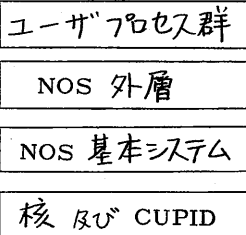 ユーザプロセス群
NOS 外層
NOS 基本システム
核 及び CUPID